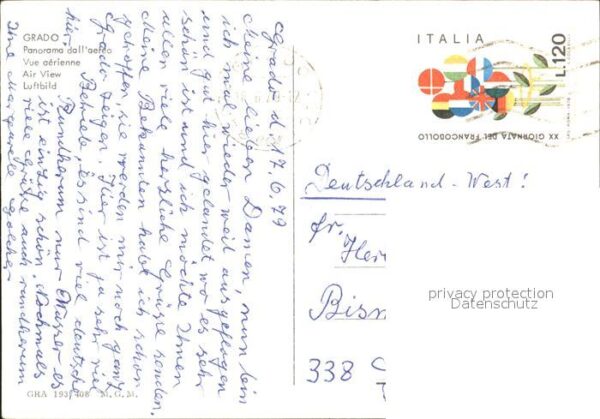 GRADO
Panorama dall'aereo
Vue aérienne
Air View
Luftbild
Grado, d. 17.6.79
Meine lieben Damen, nun bin
ich mal wieder weit ausgeflogen
und gut hier gelandet wo es sehr
schön ist und ich möchte Ihnen
allen viele herzliche Grüsse senden.
Meine Bekannten habt ich schon
getroffen, sie werden mir noch ganz
Grado zeigen. Hier ist ja sehr viel
Betrieb, es sind viel deutsche
hier. Rundherum nur Wasser es
ist einzig schön. Nochmals
viele Grüsse auch rundherum
Ihre
GHA 193/408 M. G. M.
ITALIA
L.120
XX GIORNATA DEL FRANCOBOLLO
Deutschland-West!
Fr.
Her
Bism
338
privacy protection
Datenschutz